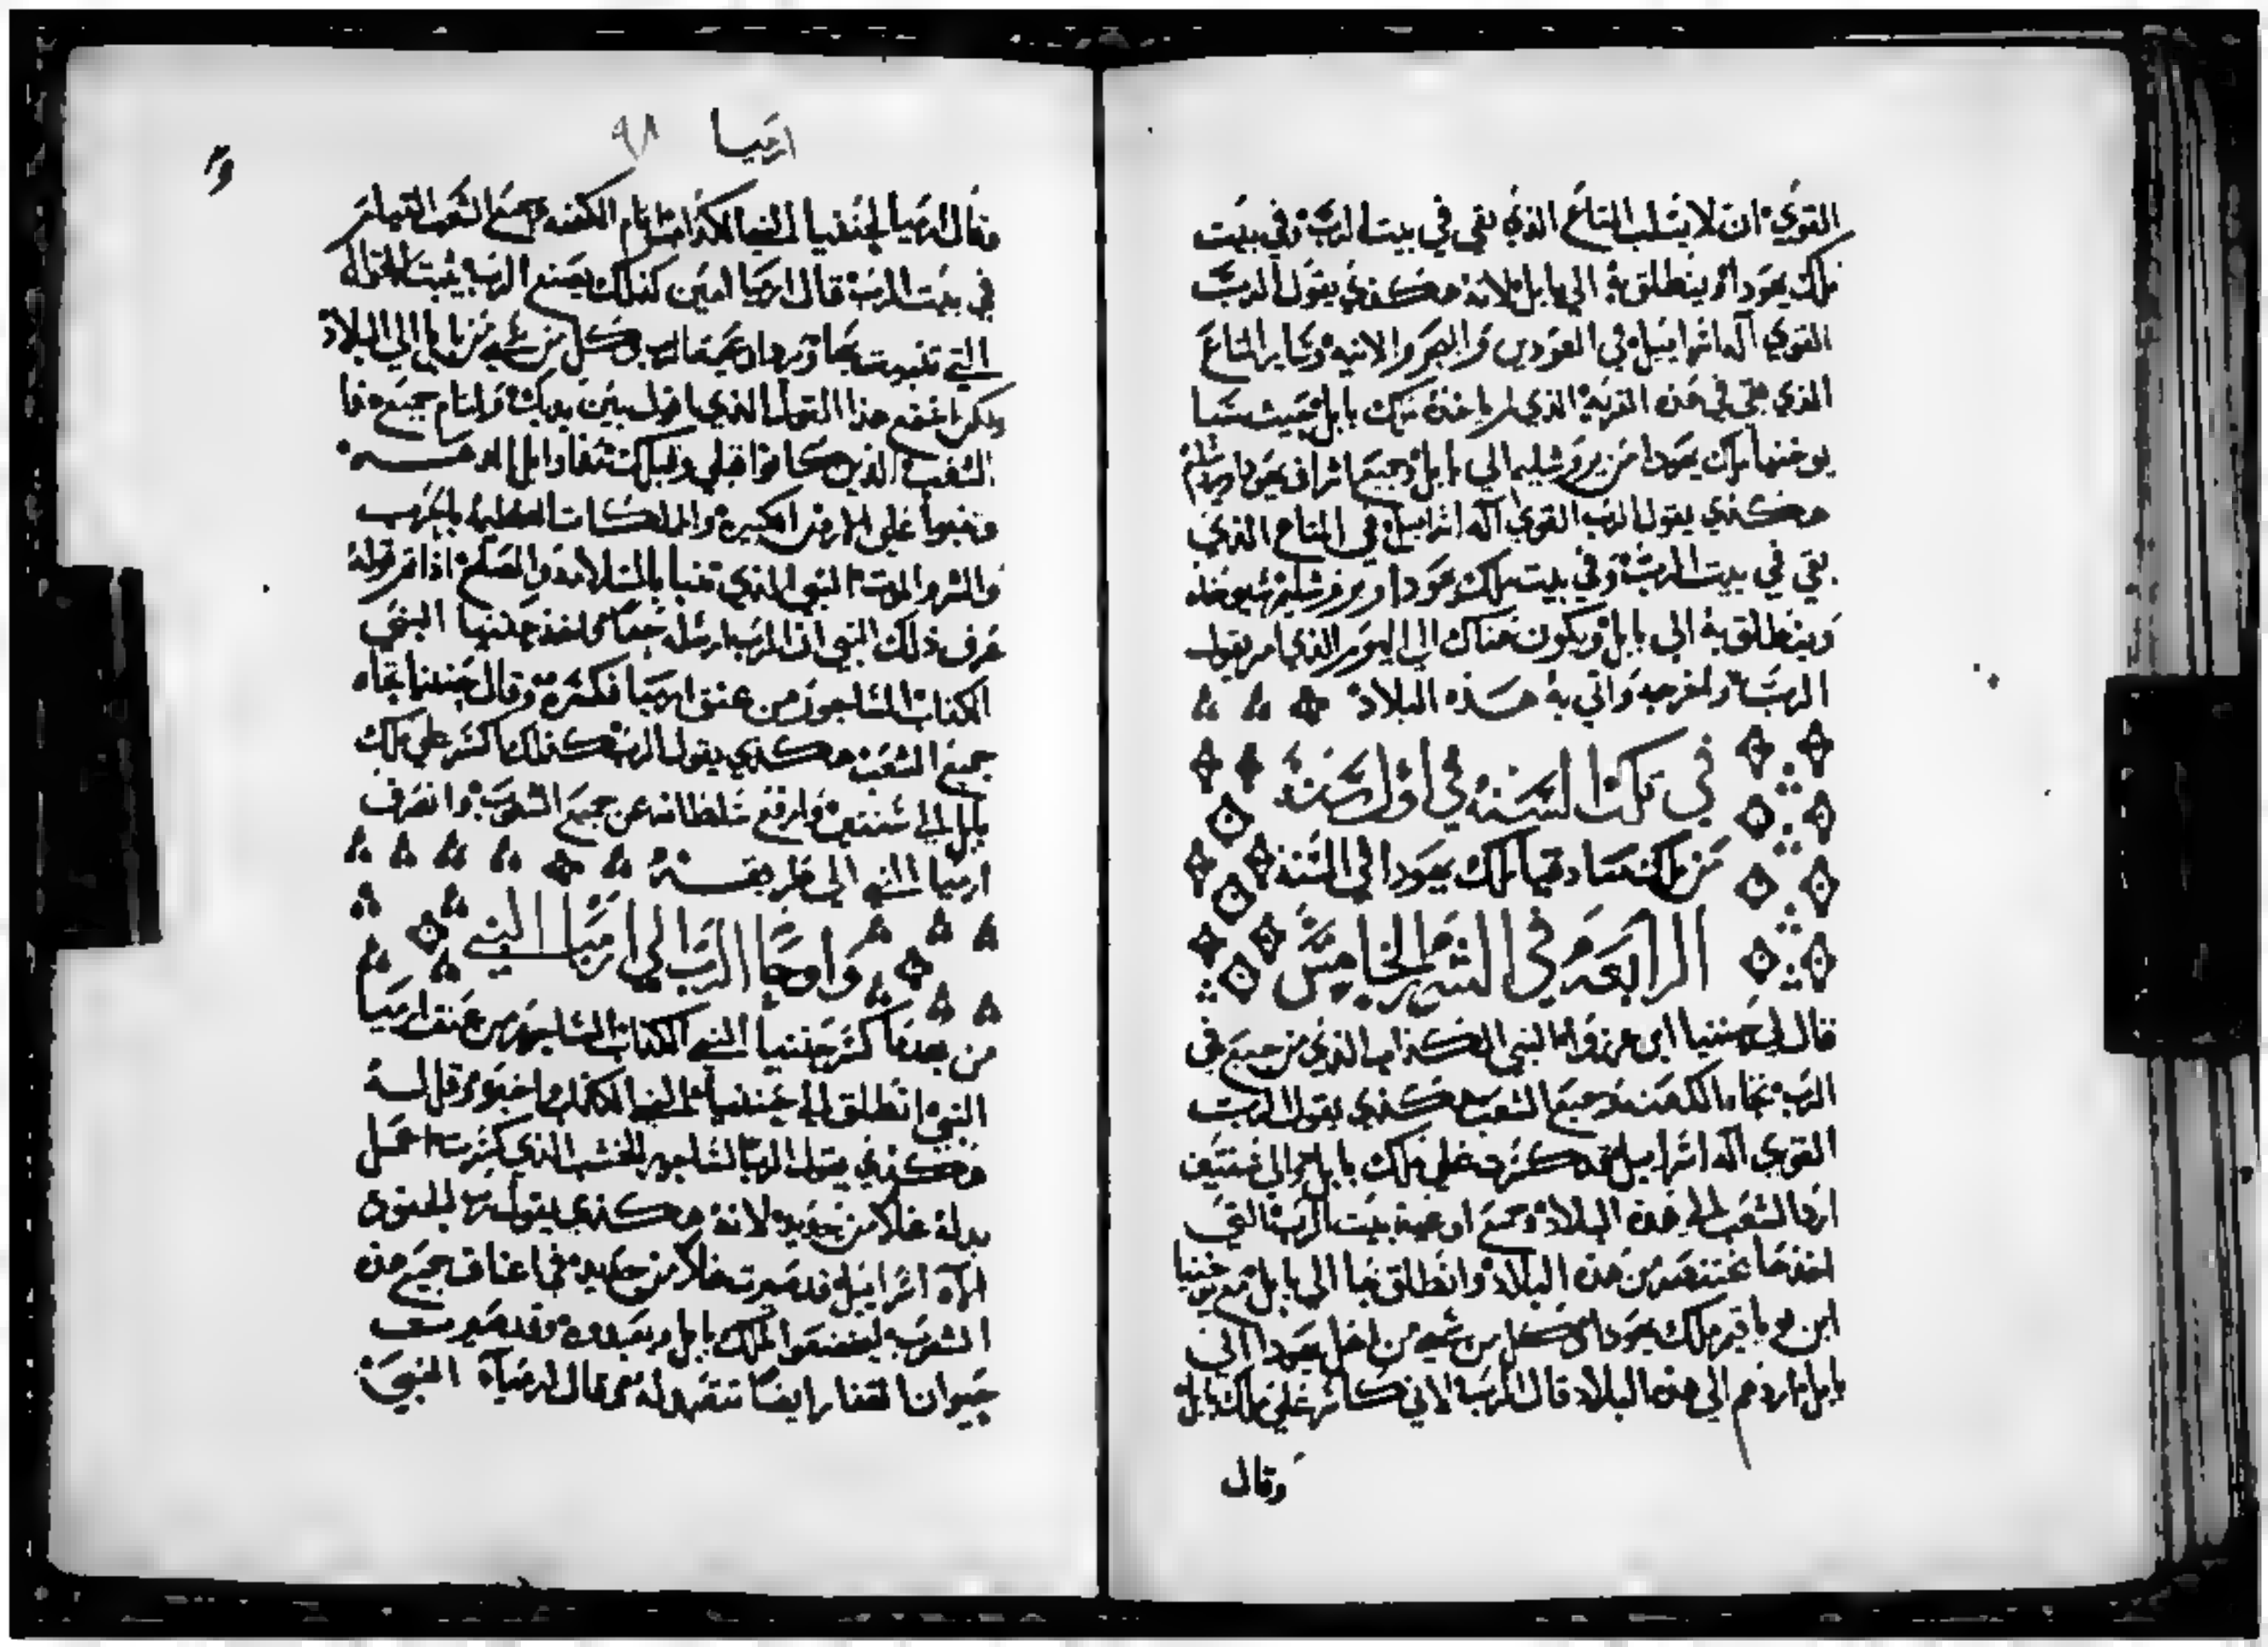 القوي ان لا يسلب المتاع الذي بقي في بيت الرب وفي بيت
ملك يهودا وينطلق به الي بابل لانه هكذي يقول الرب
القوي اله اسراييل في العودين والبحر والانيه وساير المتاع
الذي بقي في هذه القريه الذي لم ياخذه ملك بابل حيث سبا
يوخنيا ملك يهودا من يروشليم الي بابل وجميع اشراف يهودا ويروشليم
هكذي يقول الرب القوي اله اسراييل في المتاع الذي
بقي في بيت الرب وفي بيت ملك يهودا ويروشليم
وينطلق به الي بابل ويكون هناك الي اليوم الذي امر يقول
الرب واخرجه واتي به هذه البلاد
في تلك السنه في اول سنه
من ملك صادقيا ملك يهودا في السنه
الرابعه في الشهر الخامس
قال لي حننيا ابن عزورا النبي الكذاب الذي من جبعون في
الرب تجاه الكهنه وجميع الشعب هكذي يقول الرب
القوي اله اسراييل قد كسرت غلي ملك بابل والي سنتين
ارد الشعب الي هذه البلاد وجميع اوعية بيت الرب التي
اخذها بختنصر من هذه البلاد وانطلق بها الي بابل مع يوخنيا
ابن يوياقيم ملك يهودا وكل من سبي من اهل يهودا الي
بابل اردهم الي هذه البلاد قال الرب لاني كاسر غلي ملك بابل
وقال
ارميا ٩٨
وقال ارميا لحننيا النبي الكذاب امام الكهنه وجميع الشعب القيام
في بيت الرب قال ارميا امين كذلك يصنع الرب يثبت اقوالك
التي تنبيت بها ويرد اوعية بيت الرب وكل من سبي من بابل الي البلاد
ولكن اسمع هذا القول الذي اقول بين يديك وامام جميع
الشعب الذين كانوا قبلي وقبلك تنبوا
وتنبوا علي الارض الكبيره والمملكات العظيمه بالحرب
والشر والموت النبي الذي تنبا بالسلامه والصلح اذا تم قوله
عرف ذلك النبي ان الرب ارسله حقا فاخذ حننيا النبي
الكذاب الساجور من عنق ارميا فكسره وقال حننيا تجاه
جميع الشعب هكذي يقول الرب كذلك اكسر غلي ملك
بابل الي سنتين وارفع سلطانه عن جميع الشعوب وانصرف
ارميا النبي الي طريقه
واوحا الرب الي ارميا النبي
من بعدما كسر حننيا النبي الكذاب الساجور من عنق ارميا
النبي انطلق الي حننيا النبي الكذاب واخبره وقل له
هكذي يقول الرب الساجور الخشب الذي كسرت اعمل
بدله غلا من حديد لانه هكذي يقول رب الجنود
اله اسراييل قد صيرت غلا من حديد في اعناق جميع هذه
الشعوب ليخضعوا لملك بابل ويعبدوه وقد صيرت
حيوان القفار ايضا تتعبد له ثم قال ارمياه النبي